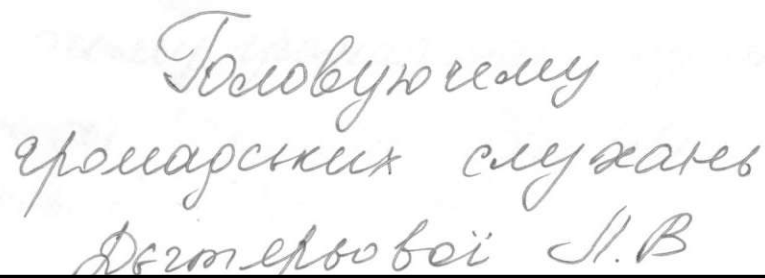 Головуючему
громадських слухань
Дєгтерьової Л.В